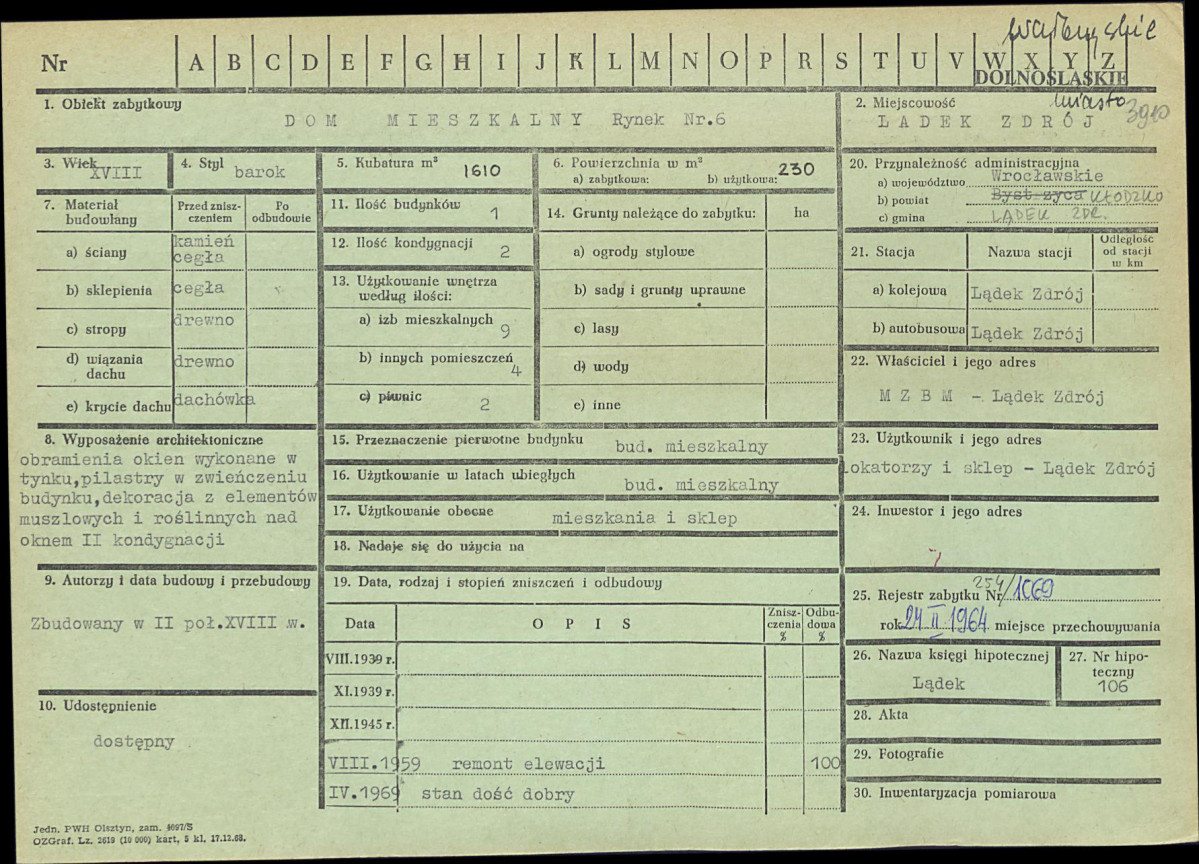 wałbrzyskie
Nr A B C D E F G H I J K L M N O P R S T U V W X Y Z
DOLNOŚLĄSKIE
1. Obiekt zabytkowy
DOM MIESZKALNY Rynek Nr.6
2. Miejscowość miasto 3910
LADEK ZDRÓJ
3. Wiek XVIII
4. Styl barok
5. Kubatura m³ 1610
6. Powierzchnia w m²
a) zabytkowa: b) użytkowa: 230
7. Materiał budowlany
Przed zniszczeniem
Po odbudowie
a) ściany kamień cegła
b) sklepienia cegła
c) stropy drewno
d) wiązania dachu drewno
e) krycie dachu dachówka
8. Wyposażenie architektoniczne
obramienia okien wykonane w
tynku,pilastry w zwieńczeniu
budynku,dekoracja z elementów
muszlowych i roślinnych nad
oknem II kondygnacji
9. Autorzy i data budowy i przebudowy
Zbudowany w II poł.XVIII .w.
10. Udostępnienie
dostępny
11. Ilość budynków 1
12. Ilość kondygnacji 2
13. Użytkowanie wnętrza
według ilości:
a) izb mieszkalnych 9
b) innych pomieszczeń 4
c) piwnic 2
14. Grunty należące do zabytku: ha
a) ogrody stylowe
b) sady i grunty uprawne
c) lasy
d) wody
e) inne
15. Przeznaczenie pierwotne budynku bud. mieszkalny
16. Użytkowanie w latach ubiegłych bud. mieszkalny
17. Użytkowanie obecne mieszkania i sklep
18. Nadaje się do użycia na
19. Data, rodzaj i stopień zniszczeń i odbudowy
Data OPIS Zniszczenia % Odbudowa %
VIII.1939 r.
XI.1939 r.
XII.1945 r.
VIII.1959 remont elewacji 100
IV.1969 stan dość dobry
20. Przynależność administracyjna
a) województwo Wrocławskie
b) powiat Bystrzyca KŁODZKO
c) gmina LĄDEK ZDR.
21. Stacja Nazwa stacji Odległość od stacji w km
a) kolejowa Lądek Zdrój
b) autobusowa Lądek Zdrój
22. Właściciel i jego adres
M Z B M - Lądek Zdrój
23. Użytkownik i jego adres
lokatorzy i sklep - Lądek Zdrój
24. Inwestor i jego adres
25. Rejestr zabytku Nr 254/1069
rok 24 II 1964 miejsce przechowywania
26. Nazwa księgi hipotecznej
Lądek
27. Nr hipoteczny
106
28. Akta
29. Fotografie
30. Inwentaryzacja pomiarowa
Jedn. PWH Olsztyn, zam. 4097/S
OZGraf. Lz. 2619 (10 000) kart, 5 kl. 17.12.68.